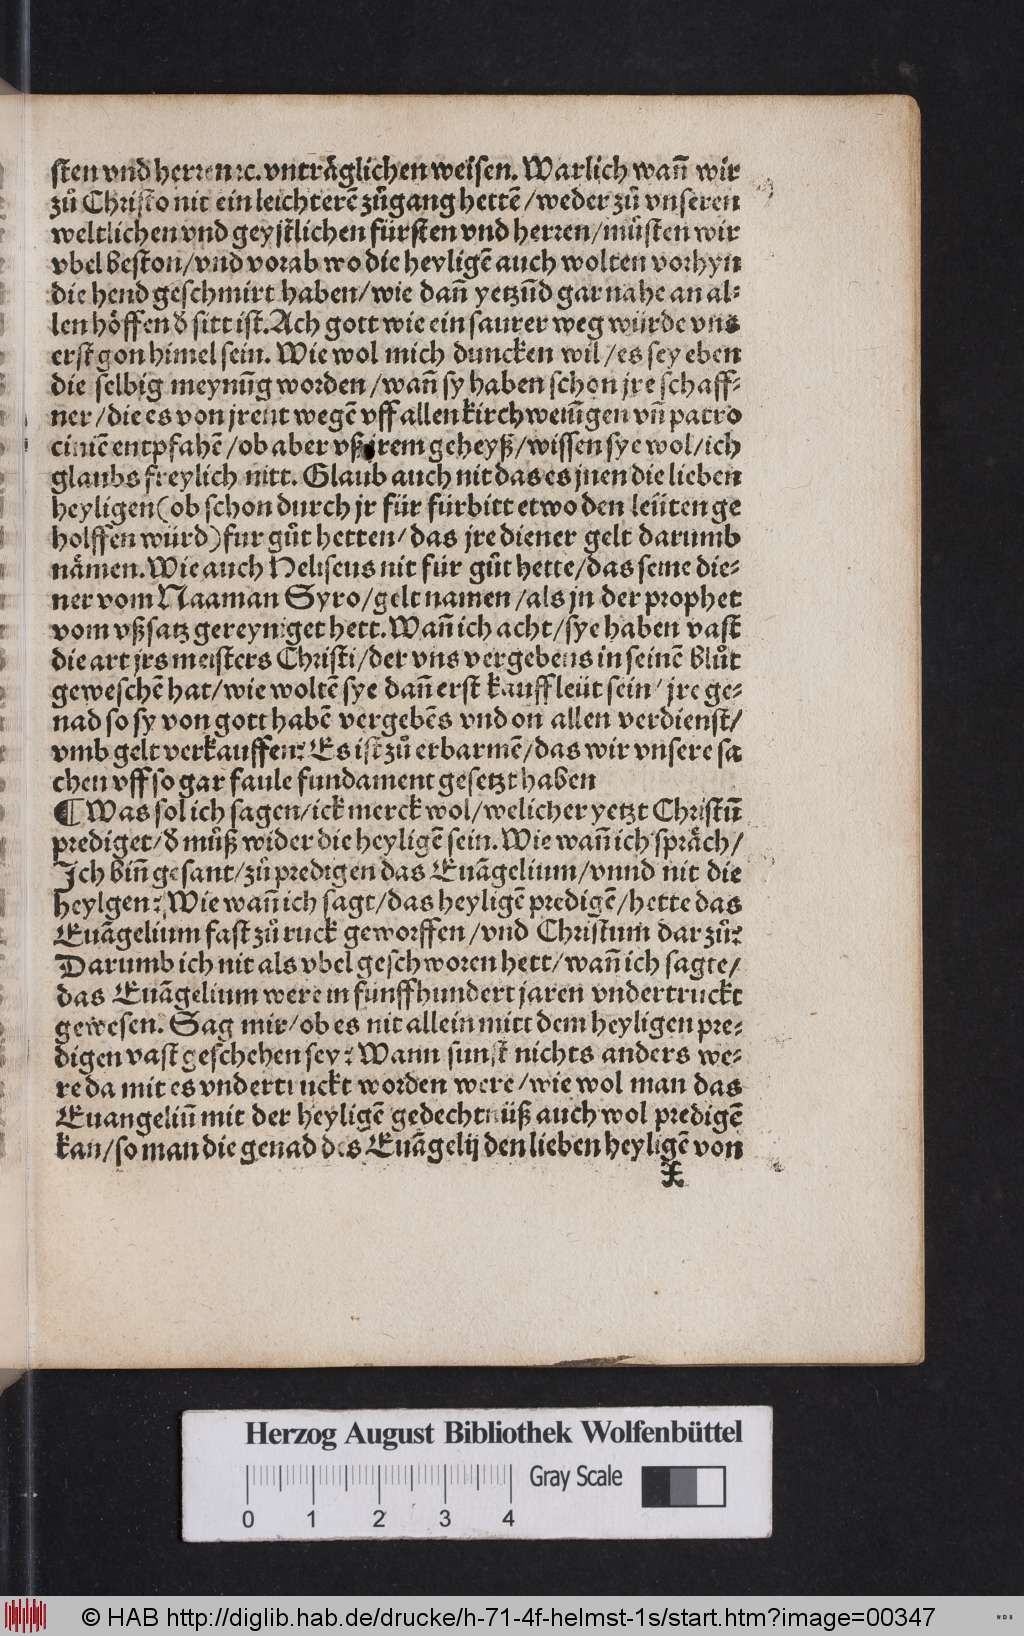 sten vnd herren ꝛc. vnträglichen weisen. Warlich wañ wir
zů Christo nit ein leichterẽ zůgang hettẽ/weder zů vnseren
weltlichen vnd geystlichen fürsten vnd herren/můsten wir
vbel beston/vnd vorab wo die heyligẽ auch wolten vorhyn
die hend geschmirt haben/wie dañ yetzũd gar nahe an al⸗
len höffen đ sitt ist. Ach gott wie ein saurer weg würde vns
erst gon himel sein. Wie wol mich duncken wil/es sey eben
die selbig meynũg worden/wañ sy haben schon jre schaff⸗
ner/die es von jrent wegẽ vff allen kirchweiũgen vñ patro
ciniẽ entpfahẽ/ob aber vß jrem geheyß/wissen sye wol/ich
glaubs freylich nitt. Glaub auch nit das es jnen die lieben
heyligen(ob schon durch jr für fürbitt etwo den leüten ge
holffen würd)fur gůt hetten/das jre diener gelt darumb
nämen. Wie auch Heliseus nit für gůt hette/das seine die⸗
ner vom Naaman Syro/gelt namen/als jn der prophet
vom vßsatz gereyniget hett. Wañ ich acht/sye haben vast
die art jrs meisters Christi/der vns vergebens in seinẽ blůt
geweschẽ hat/wie woltẽ sye dañ erst kauffleüt sein/jre ge⸗
nad so sy von gott habẽ vergebẽs vnd on allen verdienst/
vmb gelt verkauffen? Es ist zů erbarmẽ/das wir vnsere sa
chen vff so gar faule fundament gesetzt haben
¶ Was sol ich sagen/ick merck wol/welicher yetzt Christũ
prediget/đ můß wider die heyligẽ sein. Wie wañ ich spräch/
Ich biñ gesant/zů predigen das Euãgelium/vnnd nit die
heylgen? Wie wañ ich sagt/das heyligẽ predigẽ/hette das
Euãgelium fast zů ruck geworffen/vnd Christum dar zů?
Darumb ich nit als vbel geschworen hett/wañ ich sagte/
das Euãgelium were in funffhundert jaren vndertruckt
gewesen. Sag mir/ob es nit allein mitt dem heyligen pre⸗
digen vast geschehen sey? Wann sunst nichts anders we⸗
re da mit es vndertruckt worden were/wie wol man das
Euangeliũ mit der heyligẽ gedechtnüß auch wol predigẽ
kan/so man die genad des Euãgelij den lieben heyligẽ von
Herzog August Bibliothek Wolfenbüttel
Gray Scale
0 1 2 3 4
© HAB http://diglib.hab.de/drucke/h-71-4f-helmst-1s/start.htm?image=00347